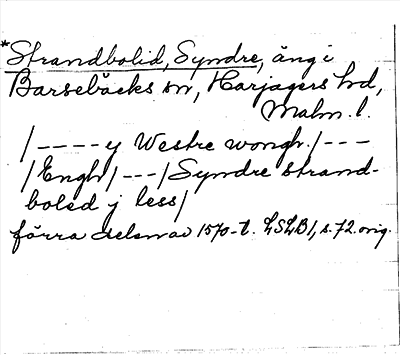 *Strandbolid, Syndre, äng i
Barsebäcks sn, Harjagers hd,
Malm. l.
/----y Westre wongh./---
/Engh/---/Syndre strand-
boled j less/
förra delen av 1570-t. LSLB1, s. 72. orig.